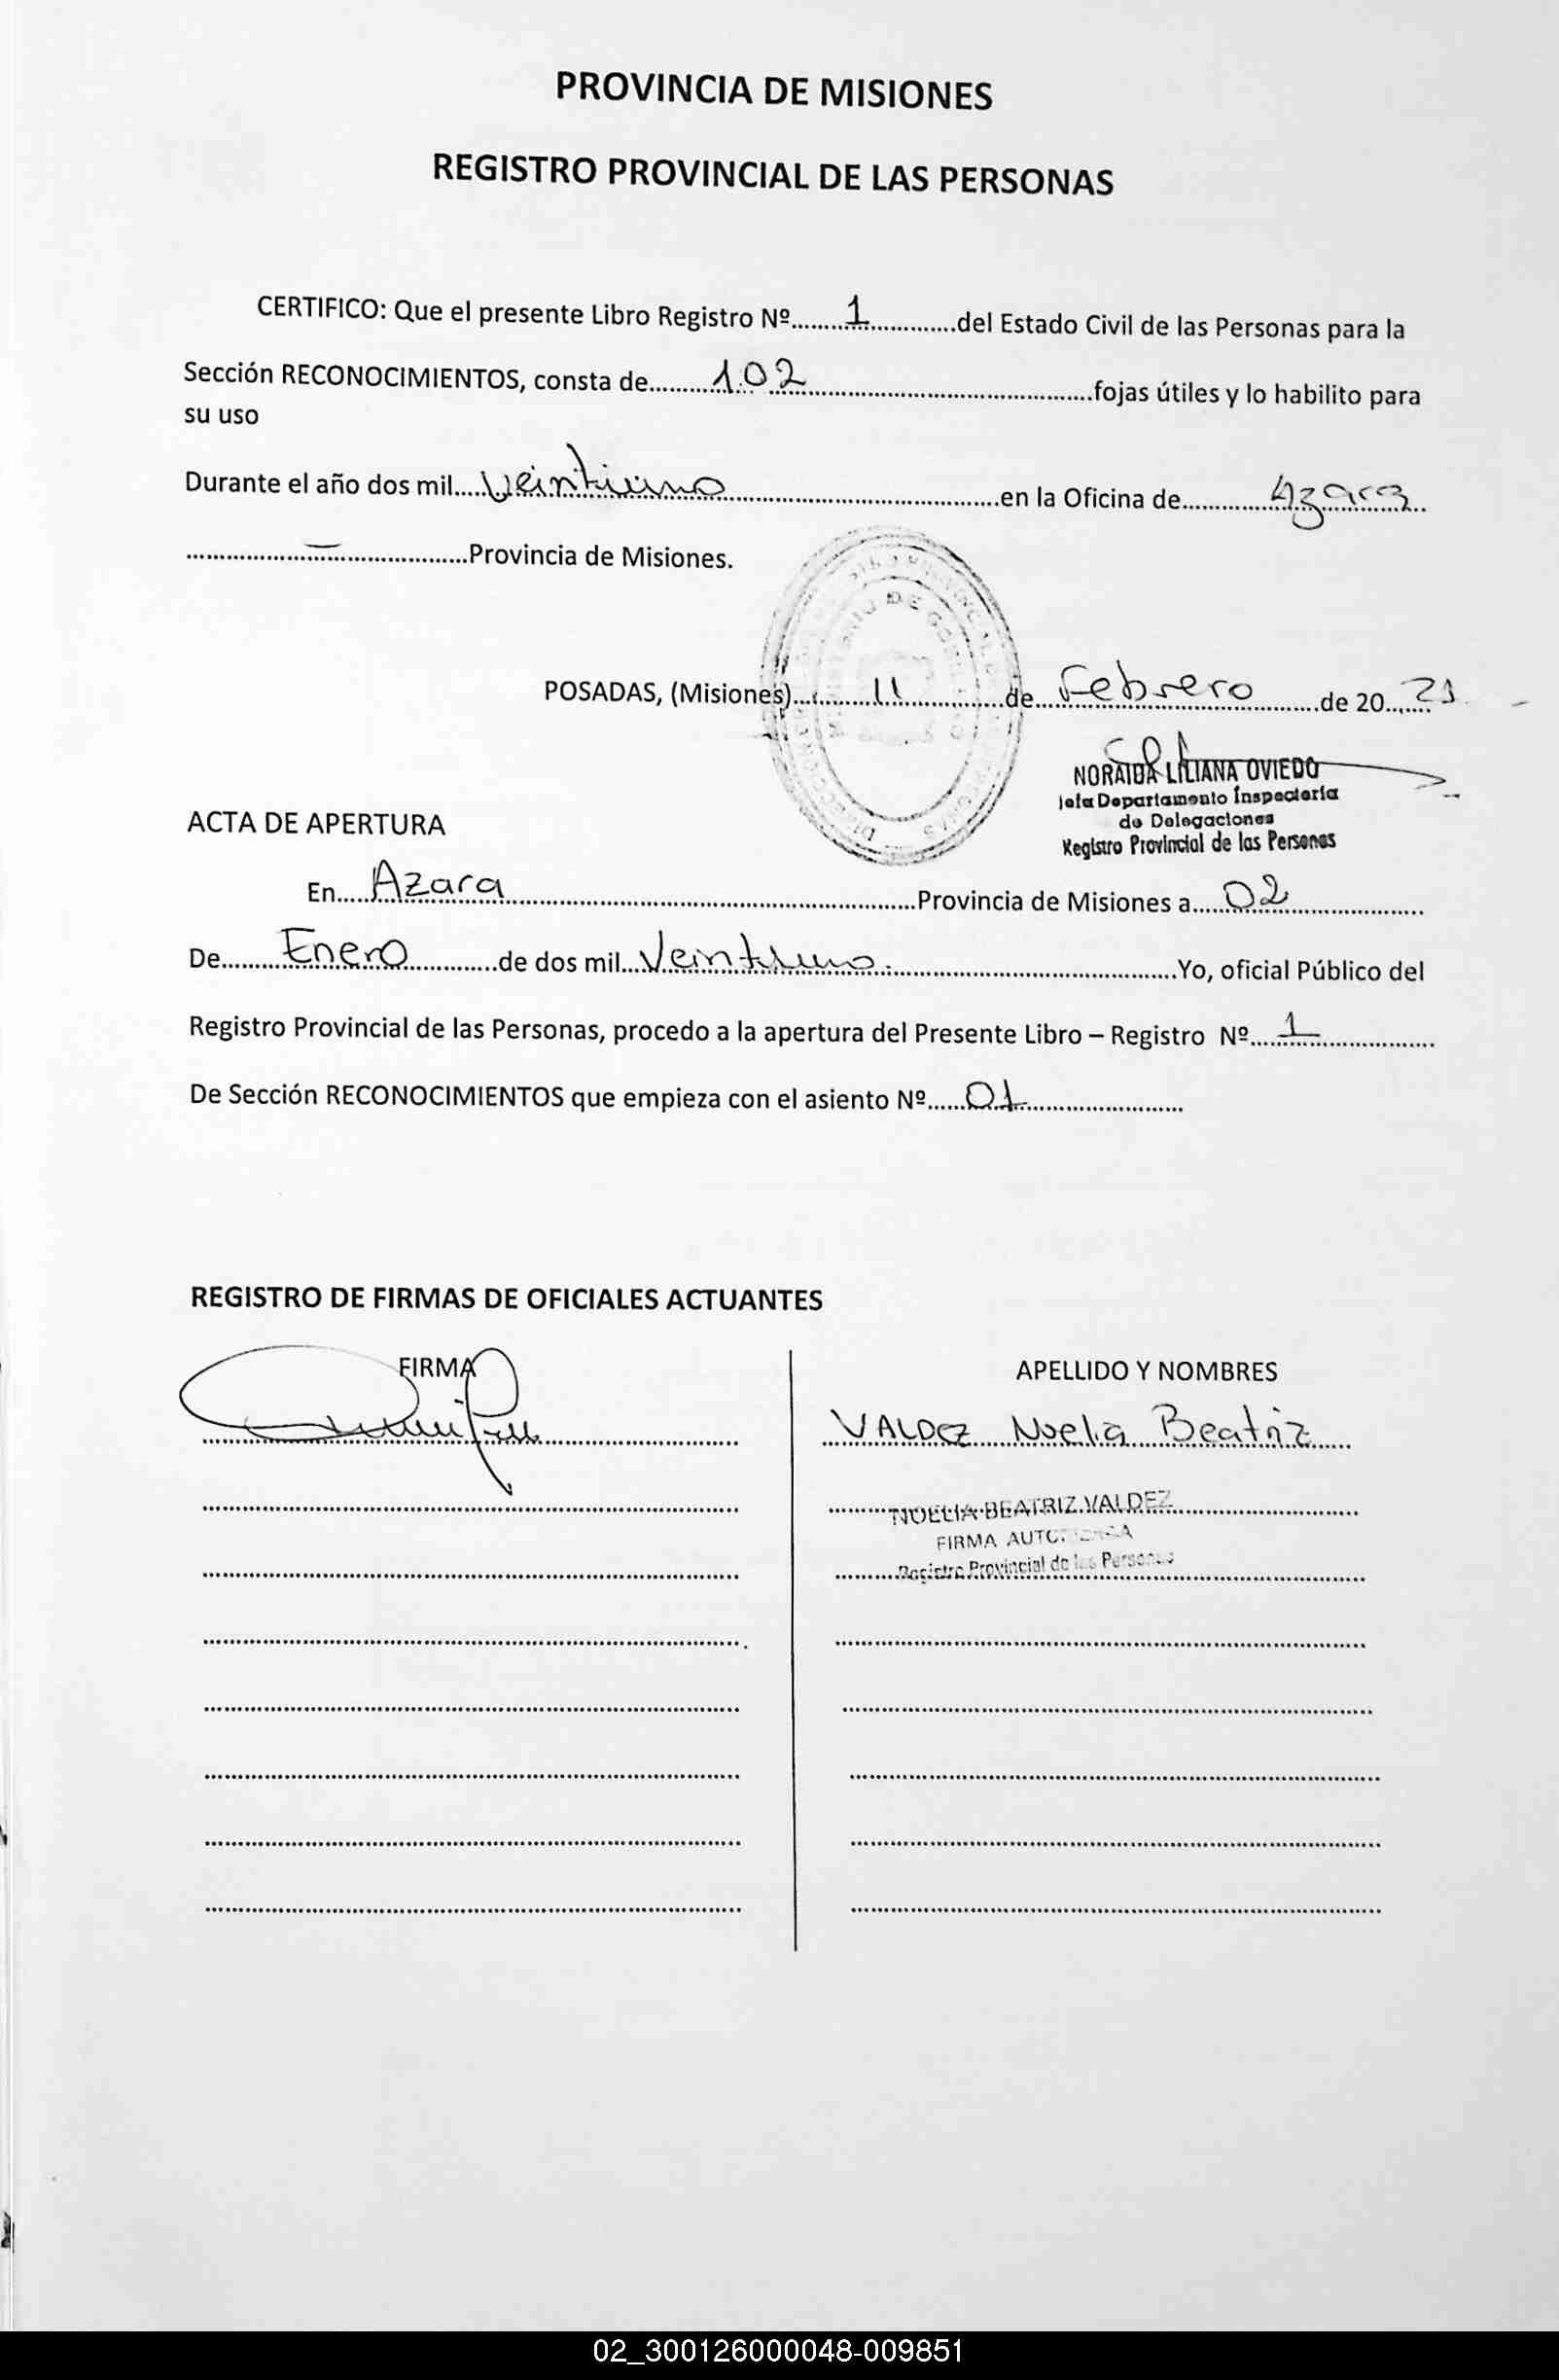 PROVINCIA DE MISIONES
REGISTRO PROVINCIAL DE LAS PERSONAS
CERTIFICO: Que el presente Libro Registro Nº 1 del Estado Civil de las Personas para la
Sección RECONOCIMIENTOS, consta de 102 fojas útiles y lo habilito para
su uso
Durante el año dos mil Veintiuno en la Oficina de Azara
— Provincia de Misiones.
POSADAS, (Misiones) 11 de Febrero de 20 21
NORAIDA LILIANA OVIEDO
Jefa Departamento Inspectoría
de Delegaciones
Registro Provincial de las Personas
ACTA DE APERTURA
En Azara Provincia de Misiones a 02
De Enero de dos mil Veintiuno. Yo, oficial Público del
Registro Provincial de las Personas, procedo a la apertura del Presente Libro – Registro Nº 1
De Sección RECONOCIMIENTOS que empieza con el asiento Nº 01
REGISTRO DE FIRMAS DE OFICIALES ACTUANTES
FIRMA APELLIDO Y NOMBRES
VALDEZ Noelia Beatriz
NOELIA BEATRIZ VALDEZ
FIRMA AUTORIZADA
Registro Provincial de las Personas
02_300126000048-009851